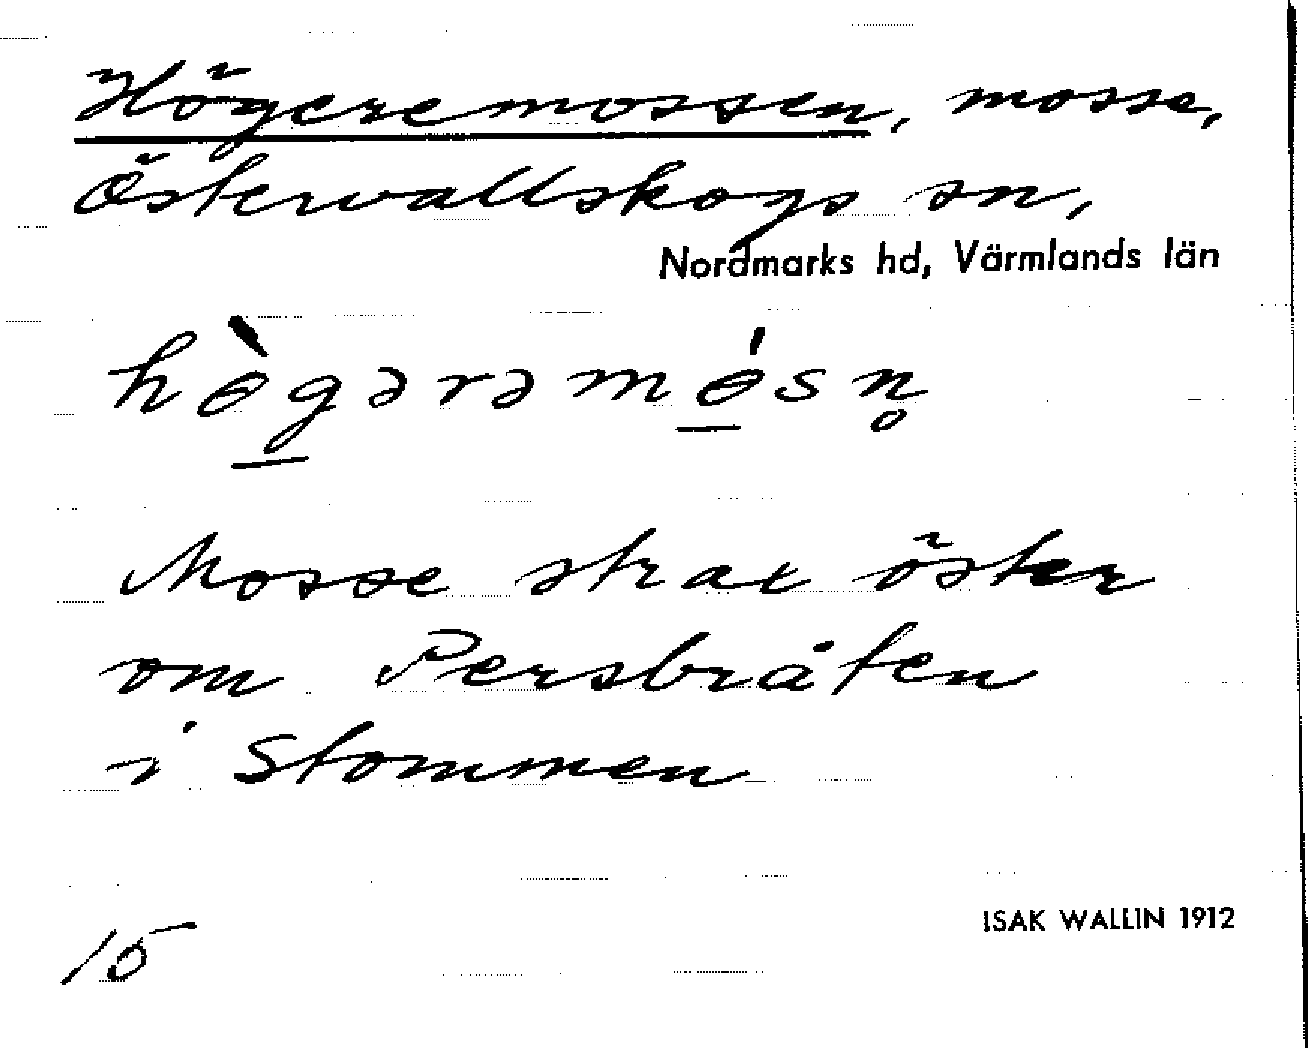 Högeremossen, mosse,
Östervallskogs sn,
Nordmarks hd, Värmlands län
hɵ̀gərəmɵ́sn̥
Mosse strax öster
om Persbråten
i Stommen
15
ISAK WALLIN 1912